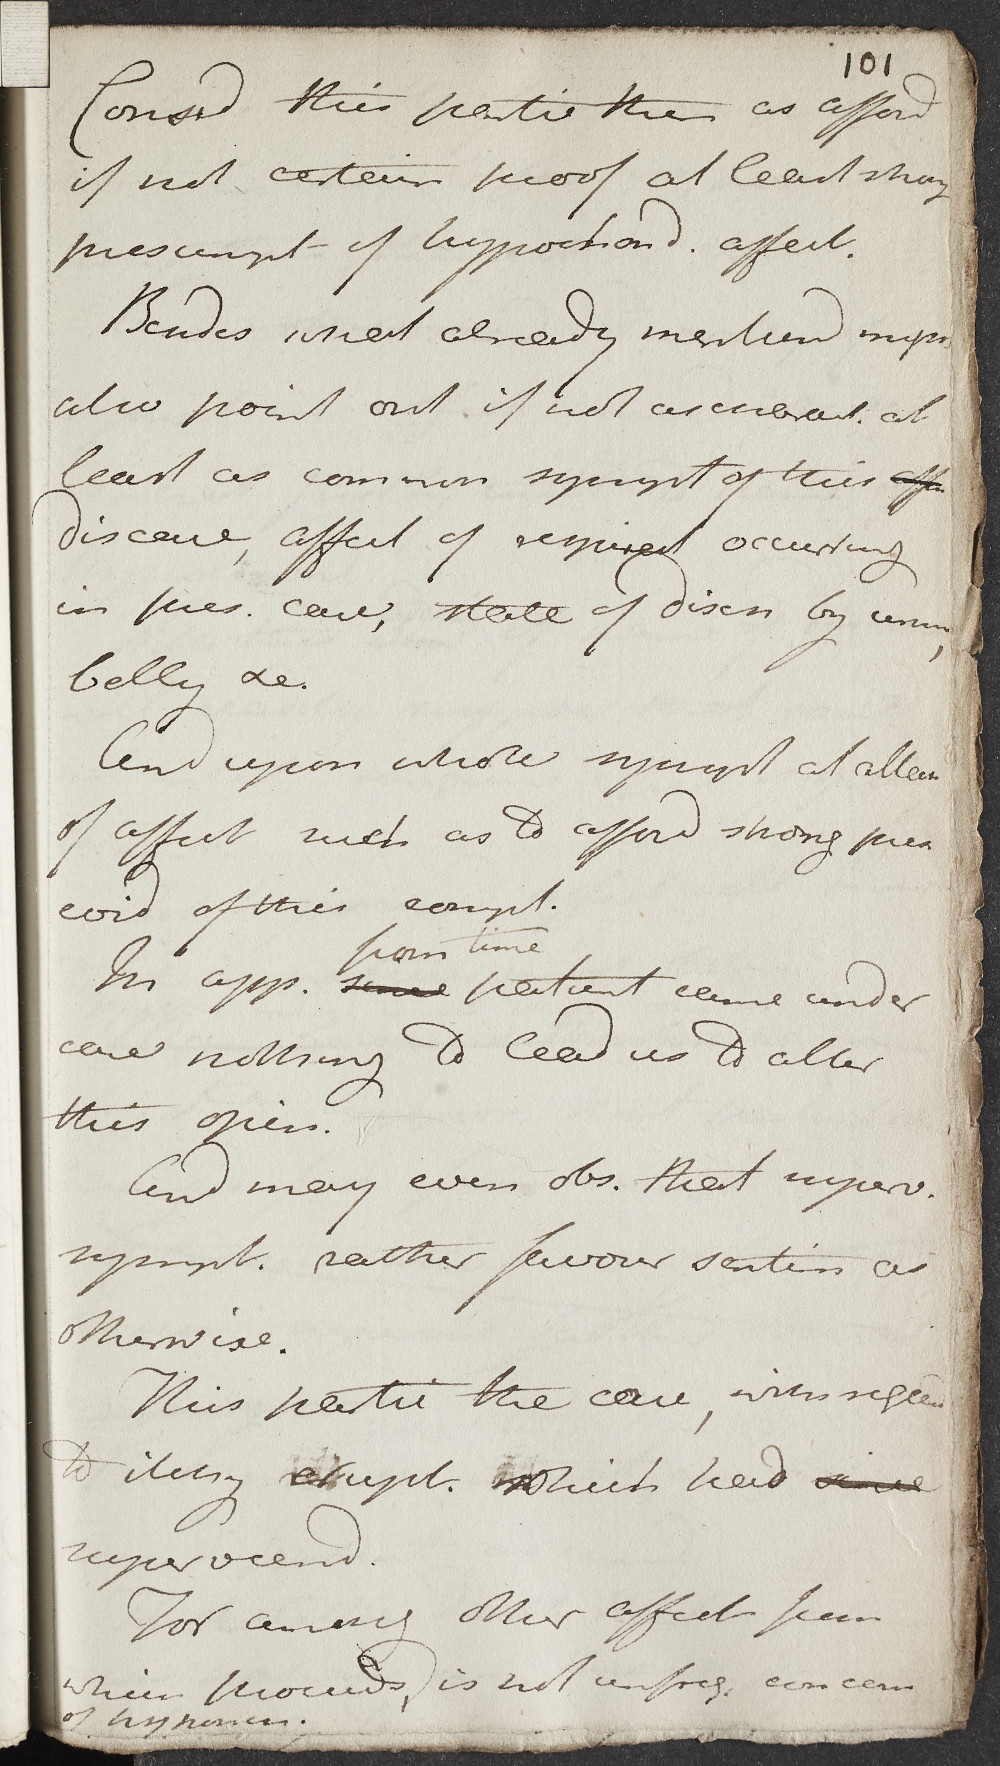 101
Consid this partic then as afford
if not certain proof at least strong
presumpt of hypochond. affect.
Besides what already mentiond
also point out if not as constant. at
least as common sympt of this affe
disease, affect of respirat occurring
in pres. case, state of disch by urine,
belly &c.
And upon whole sympt at
of affect such as to afford strong pres
evid of this compl.
from time
In app. since patient came under
care nothing to lead us to alter
this opin.
And may even obs. that superv.
sympt. rather favour sentim as
otherwise.
This partic the case, with regard
to itchy erupt. which had since
supervend.
For among other affect from
which proceeds, is not unfreq. concom
of